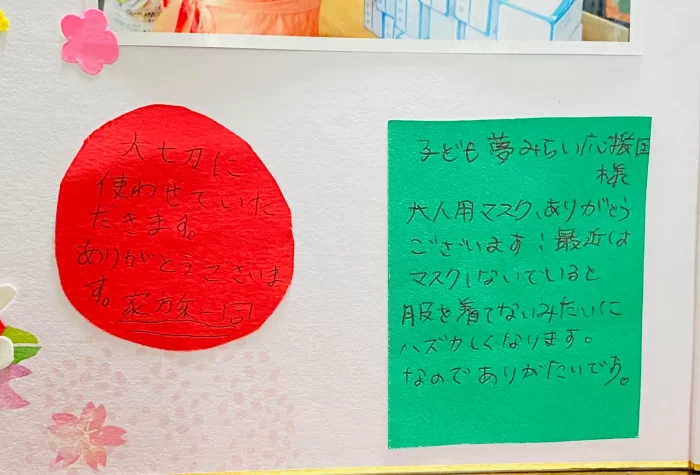 大切に
使わせていた
だきます。
ありがとうございま
す。家族一同
子ども夢みらい応援団
様
大人用マスク、ありがとう
ございます!最近は
マスクしないでいると
服を着てないみたいに
ハズカしくなります。
なのでありがたいです。